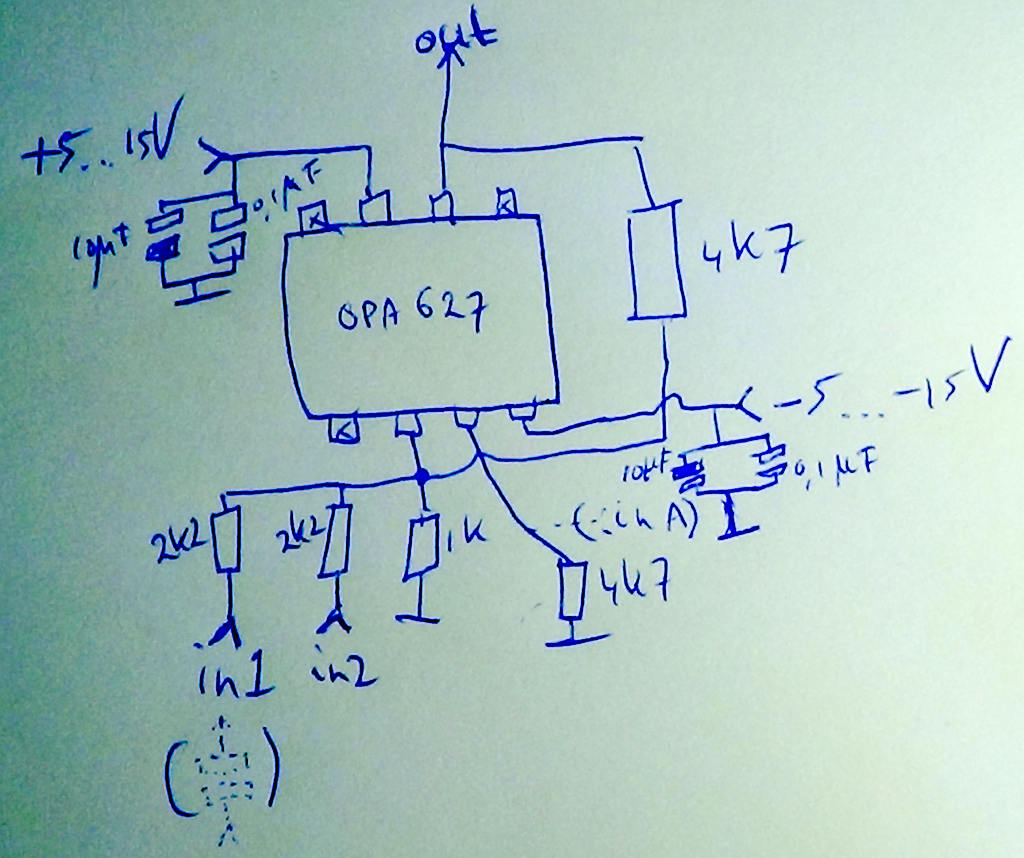 out
+5...15V
0,1µF
10µF
4k7
OPA 627
-5...-15V
10µF
0,1µF
2k2
2k2
1k
(-inA)
4k7
in1
in2